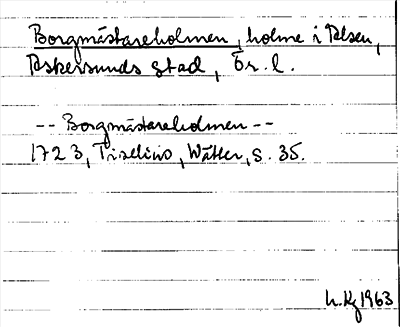 Borgmästareholmen, holme i Alsen,
Askersunds stad, Ör. l.
-- Borgmästareholmen --
1723, Tiselius, Wätter, s. 35.
1963